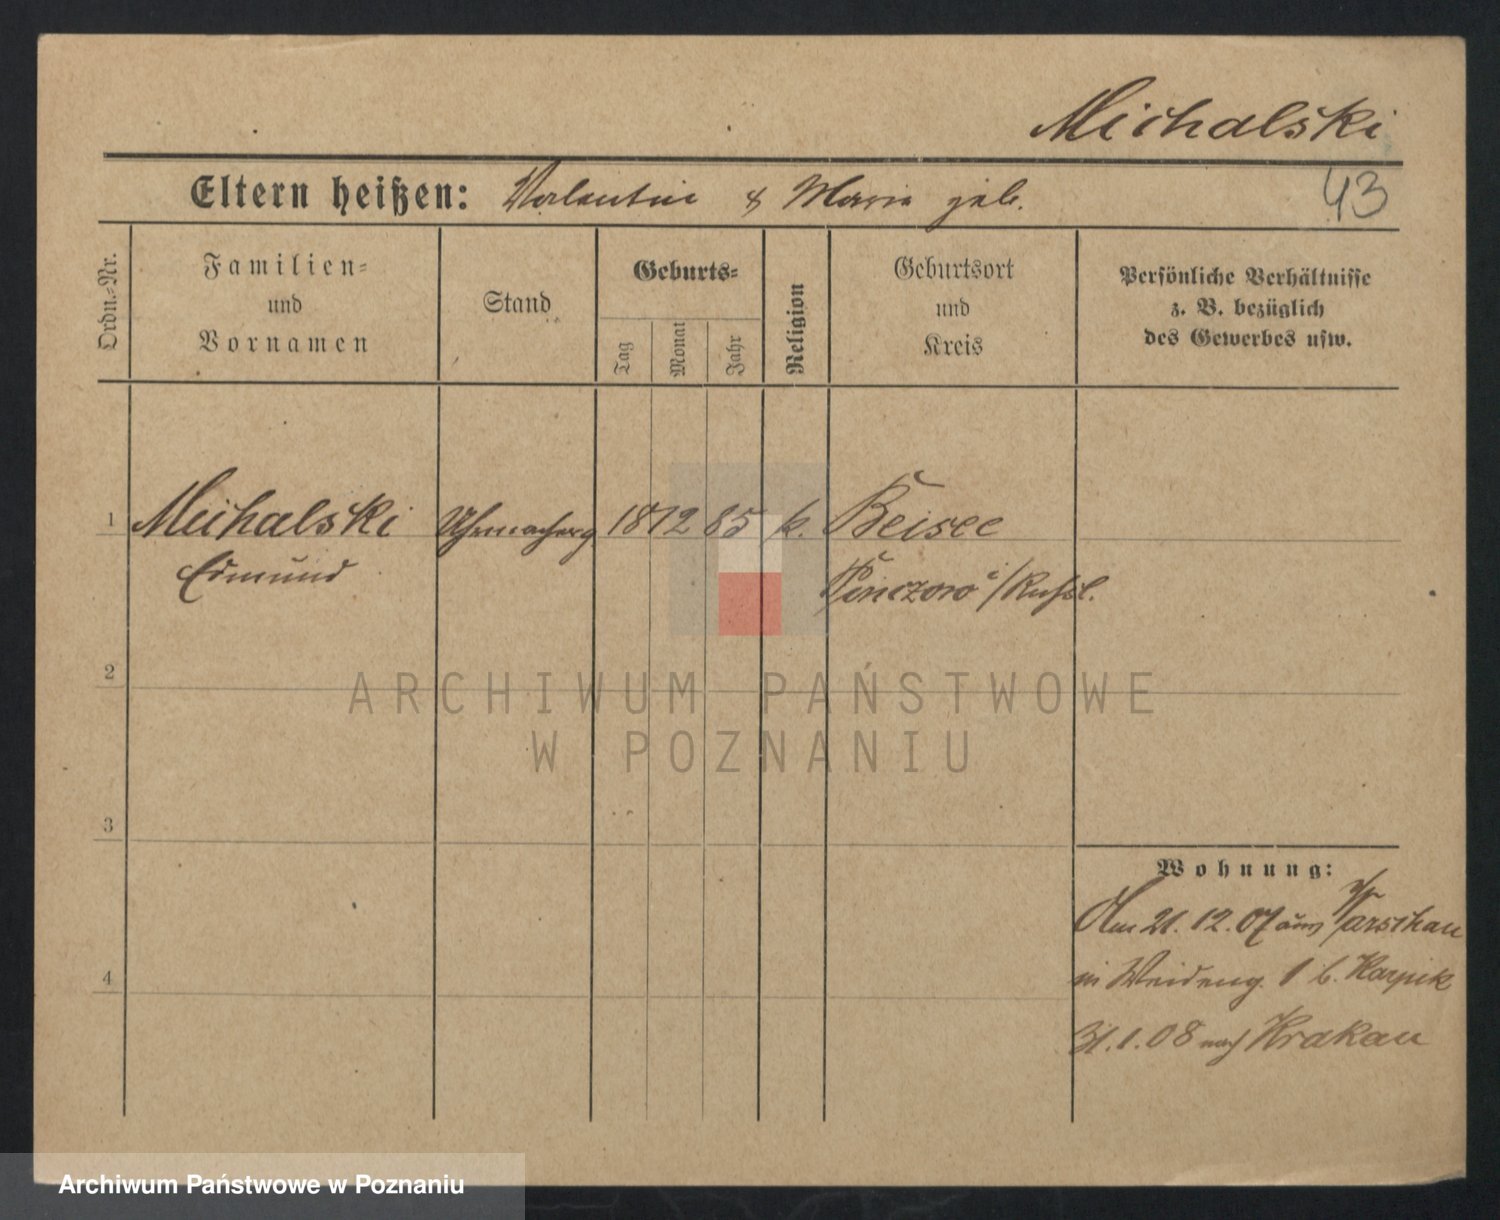 Michalski
43
Eltern heißen: Valentin & Maria geb.
Ordn.-Nr.
Familien-
und
Vornamen
Stand
Geburts-
Tag
Monat
Jahr
Religion
Geburtsort
und
Kreis
Persönliche Verhältnisse
z. B. bezüglich
des Gewerbes usw.
1 Michalski Uhrmacherg 18 12 85 k. Beisce
Edmund Pinczow i/Rußl.
2
ARCHIWUM PAŃSTWOWE
W POZNANIU
3
Wohnung:
Am 21. 12. 07 aus Warschau
4
in Weideng. 1 b. Karpik
31. 1. 08 nach Krakau
Archiwum Państwowe w Poznaniu